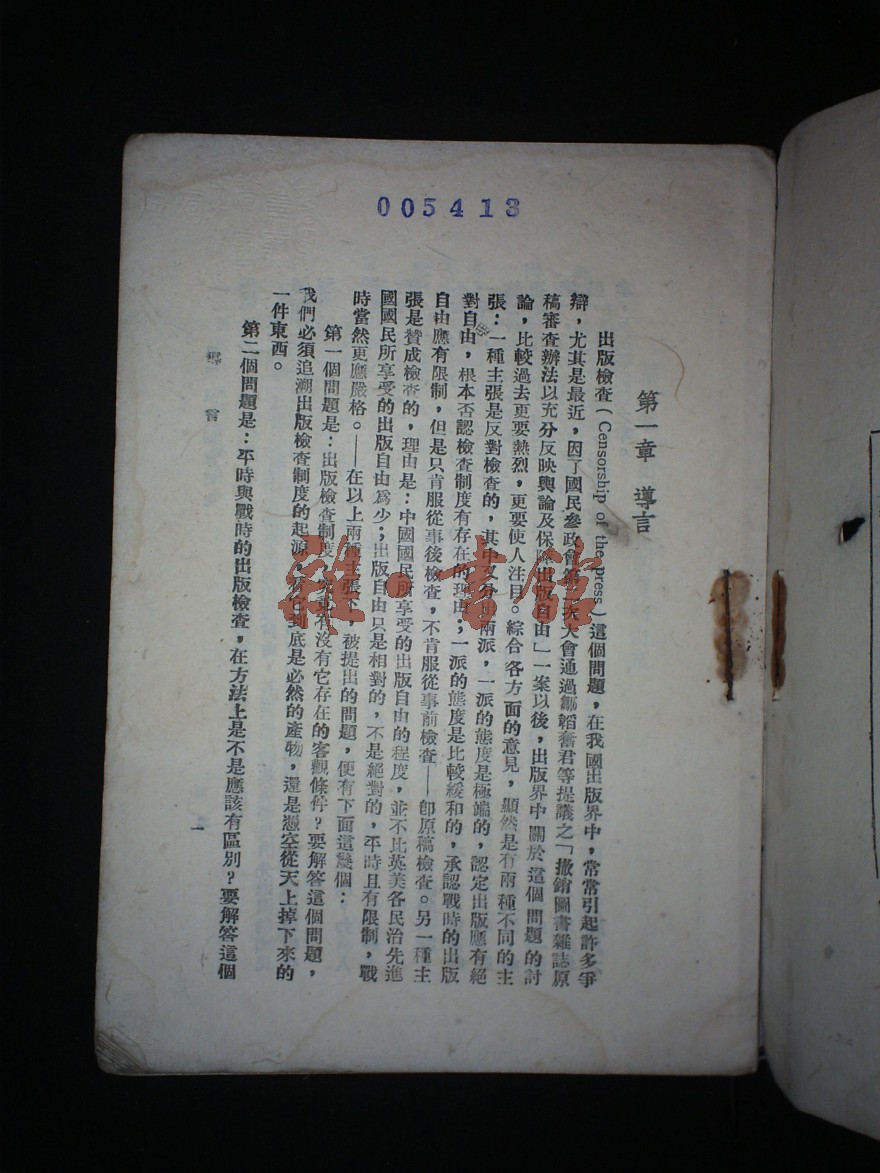 005413
第一章 導言
出版檢查(Censorship of the press)這個問題,在我國出版界中,常常引起許多爭
辯,尤其是最近,因了國民參政會第 大會通過鄒韜奮君等提議之「撤銷圖書雜誌原
稿審查辦法以充分反映輿論及保障出版自由」一案以後,出版界中關於這個問題的討
論,比較過去更要熱烈,更要使人注目。綜合各方面的意見,顯然是有兩種不同的主
張:一種主張是反對檢查的,其中又分出兩派,一派的態度是極端的,認定出版應有絕
對自由,根本否認檢查制度有存在的理由;一派的態度是比較緩和的,承認戰時的出版
自由應有限制,但是只肯服從事後檢查,不肯服從事前檢查——卽原稿檢查。另一種主
張是贊成檢查的,理由是:中國國民所享受的出版自由的程度,並不比英美各民治先進
國國民所享受的出版自由爲少;出版自由只是相對的,不是絕對的,平時且有限制,戰
時當然更應嚴格。——在以上兩種主張下,被提出的問題,便有下面這幾個:
第一個問題是:出版檢查制度 有沒有它存在的客觀條件?要解答這個問題,
我們必須追溯出版檢查制度的起源,看它到底是必然的產物,還是憑空從天上掉下來的
一件東西。
第二個問題是:平時與戰時的出版檢查,在方法上是不是應該有區別?要解答這個
導言
一